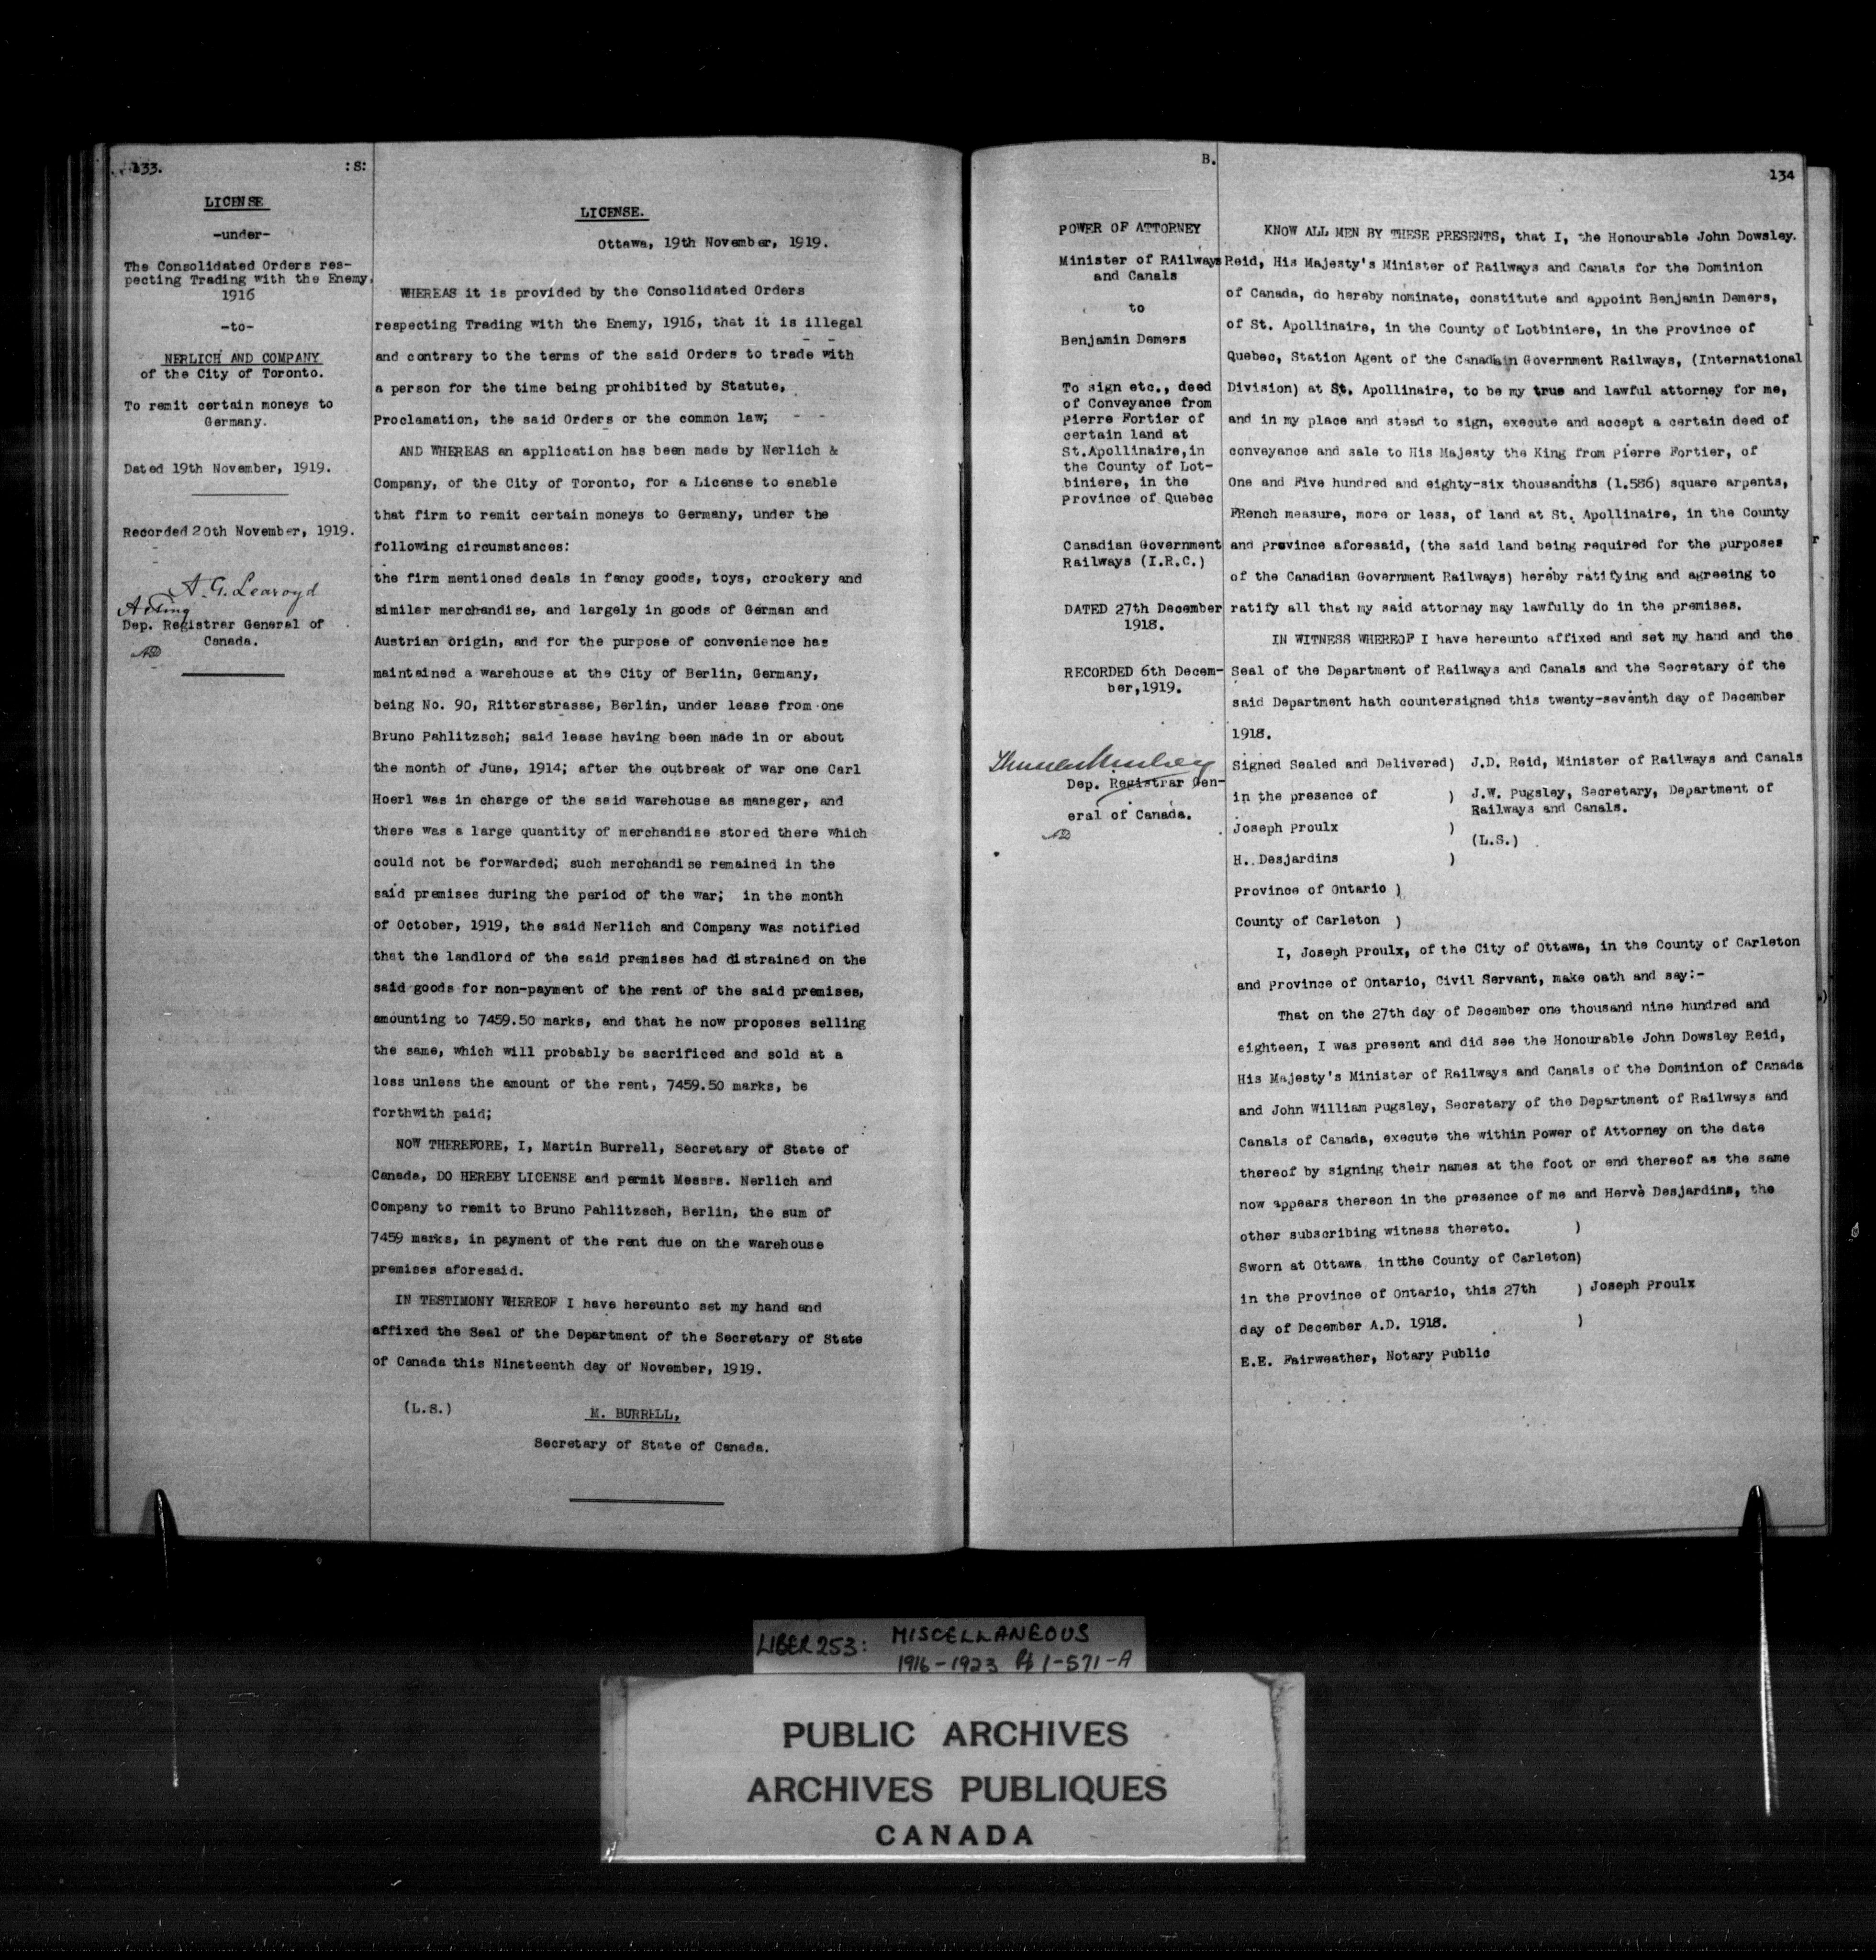 133.
:S:
LICENSE
-under-
The Consolidated Orders res-
pecting Trading with the Enemy,
1916
-to-
NERLICH AND COMPANY
of the City of Toronto.
To remit certain moneys to
Germany.
Dated 19th November, 1919.
Recorded 20th November, 1919.
A. G. Learoyd
Acting
Dep. Registrar General of
Canada.
LICENSE.
Ottawa, 19th November, 1919.
WHEREAS it is provided by the Consolidated Orders
respecting Trading with the Enemy, 1916, that it is illegal
and contrary to the terms of the said Orders to trade with
a person for the time being prohibited by Statute,
Proclamation, the said Orders or the common law; - -
AND WHEREAS an application has been made by Nerlich &
Company, of the City of Toronto, for a License to enable
that firm to remit certain moneys to Germany, under the
following circumstances:
the firm mentioned deals in fancy goods, toys, crockery and
similar merchandise, and largely in goods of German and
Austrian origin, and for the purpose of convenience has
maintained a warehouse at the City of Berlin, Germany,
being No. 90, Ritterstrasse, Berlin, under lease from one
Bruno Pahlitzsch; said lease having been made in or about
the month of June, 1914; after the outbreak of war one Carl
Hoerl was in charge of the said warehouse as manager, and
there was a large quantity of merchandise stored there which
could not be forwarded; such merchandise remained in the
said premises during the period of the war; in the month
of October, 1919, the said Nerlich and Company was notified
that the landlord of the said premises had distrained on the
said goods for non-payment of the rent of the said premises,
amounting to 7459.50 marks, and that he now proposes selling
the same, which will probably be sacrificed and sold at a
loss unless the amount of the rent, 7459.50 marks, be
forthwith paid;
NOW THEREFORE, I, Martin Burrell, Secretary of State of
Canada, DO HEREBY LICENSE and permit Messrs. Nerlich and
Company to remit to Bruno Pahlitzsch, Berlin, the sum of
7459 marks, in payment of the rent due on the warehouse
premises aforesaid.
IN TESTIMONY WHEREOF I have hereunto set my hand and
affixed the Seal of the Department of the Secretary of State
of Canada this Nineteenth day of November, 1919.
(L.S.)
M. BURRELL,
Secretary of State of Canada.
B.
134
POWER OF ATTORNEY
Minister of RAilways
and Canals
to
Benjamin Demers
To sign etc., deed
of Conveyance from
Pierre Fortier of
certain land at
St.Apollinaire,in
the County of Lot-
biniere, in the
Province of Quebec
Canadian Government
Railways (I.R.C.)
DATED 27th December
1918.
RECORDED 6th Decem-
ber,1919.
Dep. Registrar Gen-
eral of Canada.
KNOW ALL MEN BY THESE PRESENTS, that I, the Honourable John Dowsley.
Reid, His Majesty's Minister of Railways and Canals for the Dominion
of Canada, do hereby nominate, constitute and appoint Benjamin Demers,
of St. Apollinaire, in the County of Lotbiniere, in the Province of
Quebec, Station Agent of the Canadain Government Railways, (International
Division) at St. Apollinaire, to be my true and lawful attorney for me,
and in my place and stead to sign, execute and accept a certain deed of
conveyance and sale to His Majesty the King from Pierre Fortier, of
One and Five hundred and eighty-six thousandths (1.586) square arpents,
FRench measure, more or less, of land at St. Apollinaire, in the County
and Province aforesaid, (the said land being required for the purposes
of the Canadian Government Railways) hereby ratifying and agreeing to
ratify all that my said attorney may lawfully do in the premises.
IN WITNESS WHEREOF I have hereunto affixed and set my hand and the
Seal of the Department of Railways and Canals and the Secretary of the
said Department hath countersigned this twenty-seventh day of December
1918.
Signed Sealed and Delivered) J.D. Reid, Minister of Railways and Canals
in the presence of ) J.W. Pugsley, Secretary, Department of
Railways and Canals.
Joseph Proulx )
(L.S.)
H. Desjardins )
Province of Ontario )
County of Carleton )
I, Joseph Proulx, of the City of Ottawa, in the County of Carleton
and Province of Ontario, Civil Servant, make oath and say:-
That on the 27th day of December one thousand nine hundred and
eighteen, I was present and did see the Honourable John Dowsley Reid,
His Majesty's Minister of Railways and Canals of the Dominion of Canada
and John William Pugsley, Secretary of the Department of Railways and
Canals of Canada, execute the within Power of Attorney on the date
thereof by signing their names at the foot or end thereof as the same
now appears thereon in the presence of me and Hervè Desjardins, the
other subscribing witness thereto. )
Sworn at Ottawa intthe County of Carleton)
in the Province of Ontario, this 27th ) Joseph Proulx
day of December A.D. 1918. )
E.E. Fairweather, Notary Public
LIBER 253: MISCELLANEOUS
1916-1923 Pp 1-571-A
PUBLIC ARCHIVES
ARCHIVES PUBLIQUES
CANADA